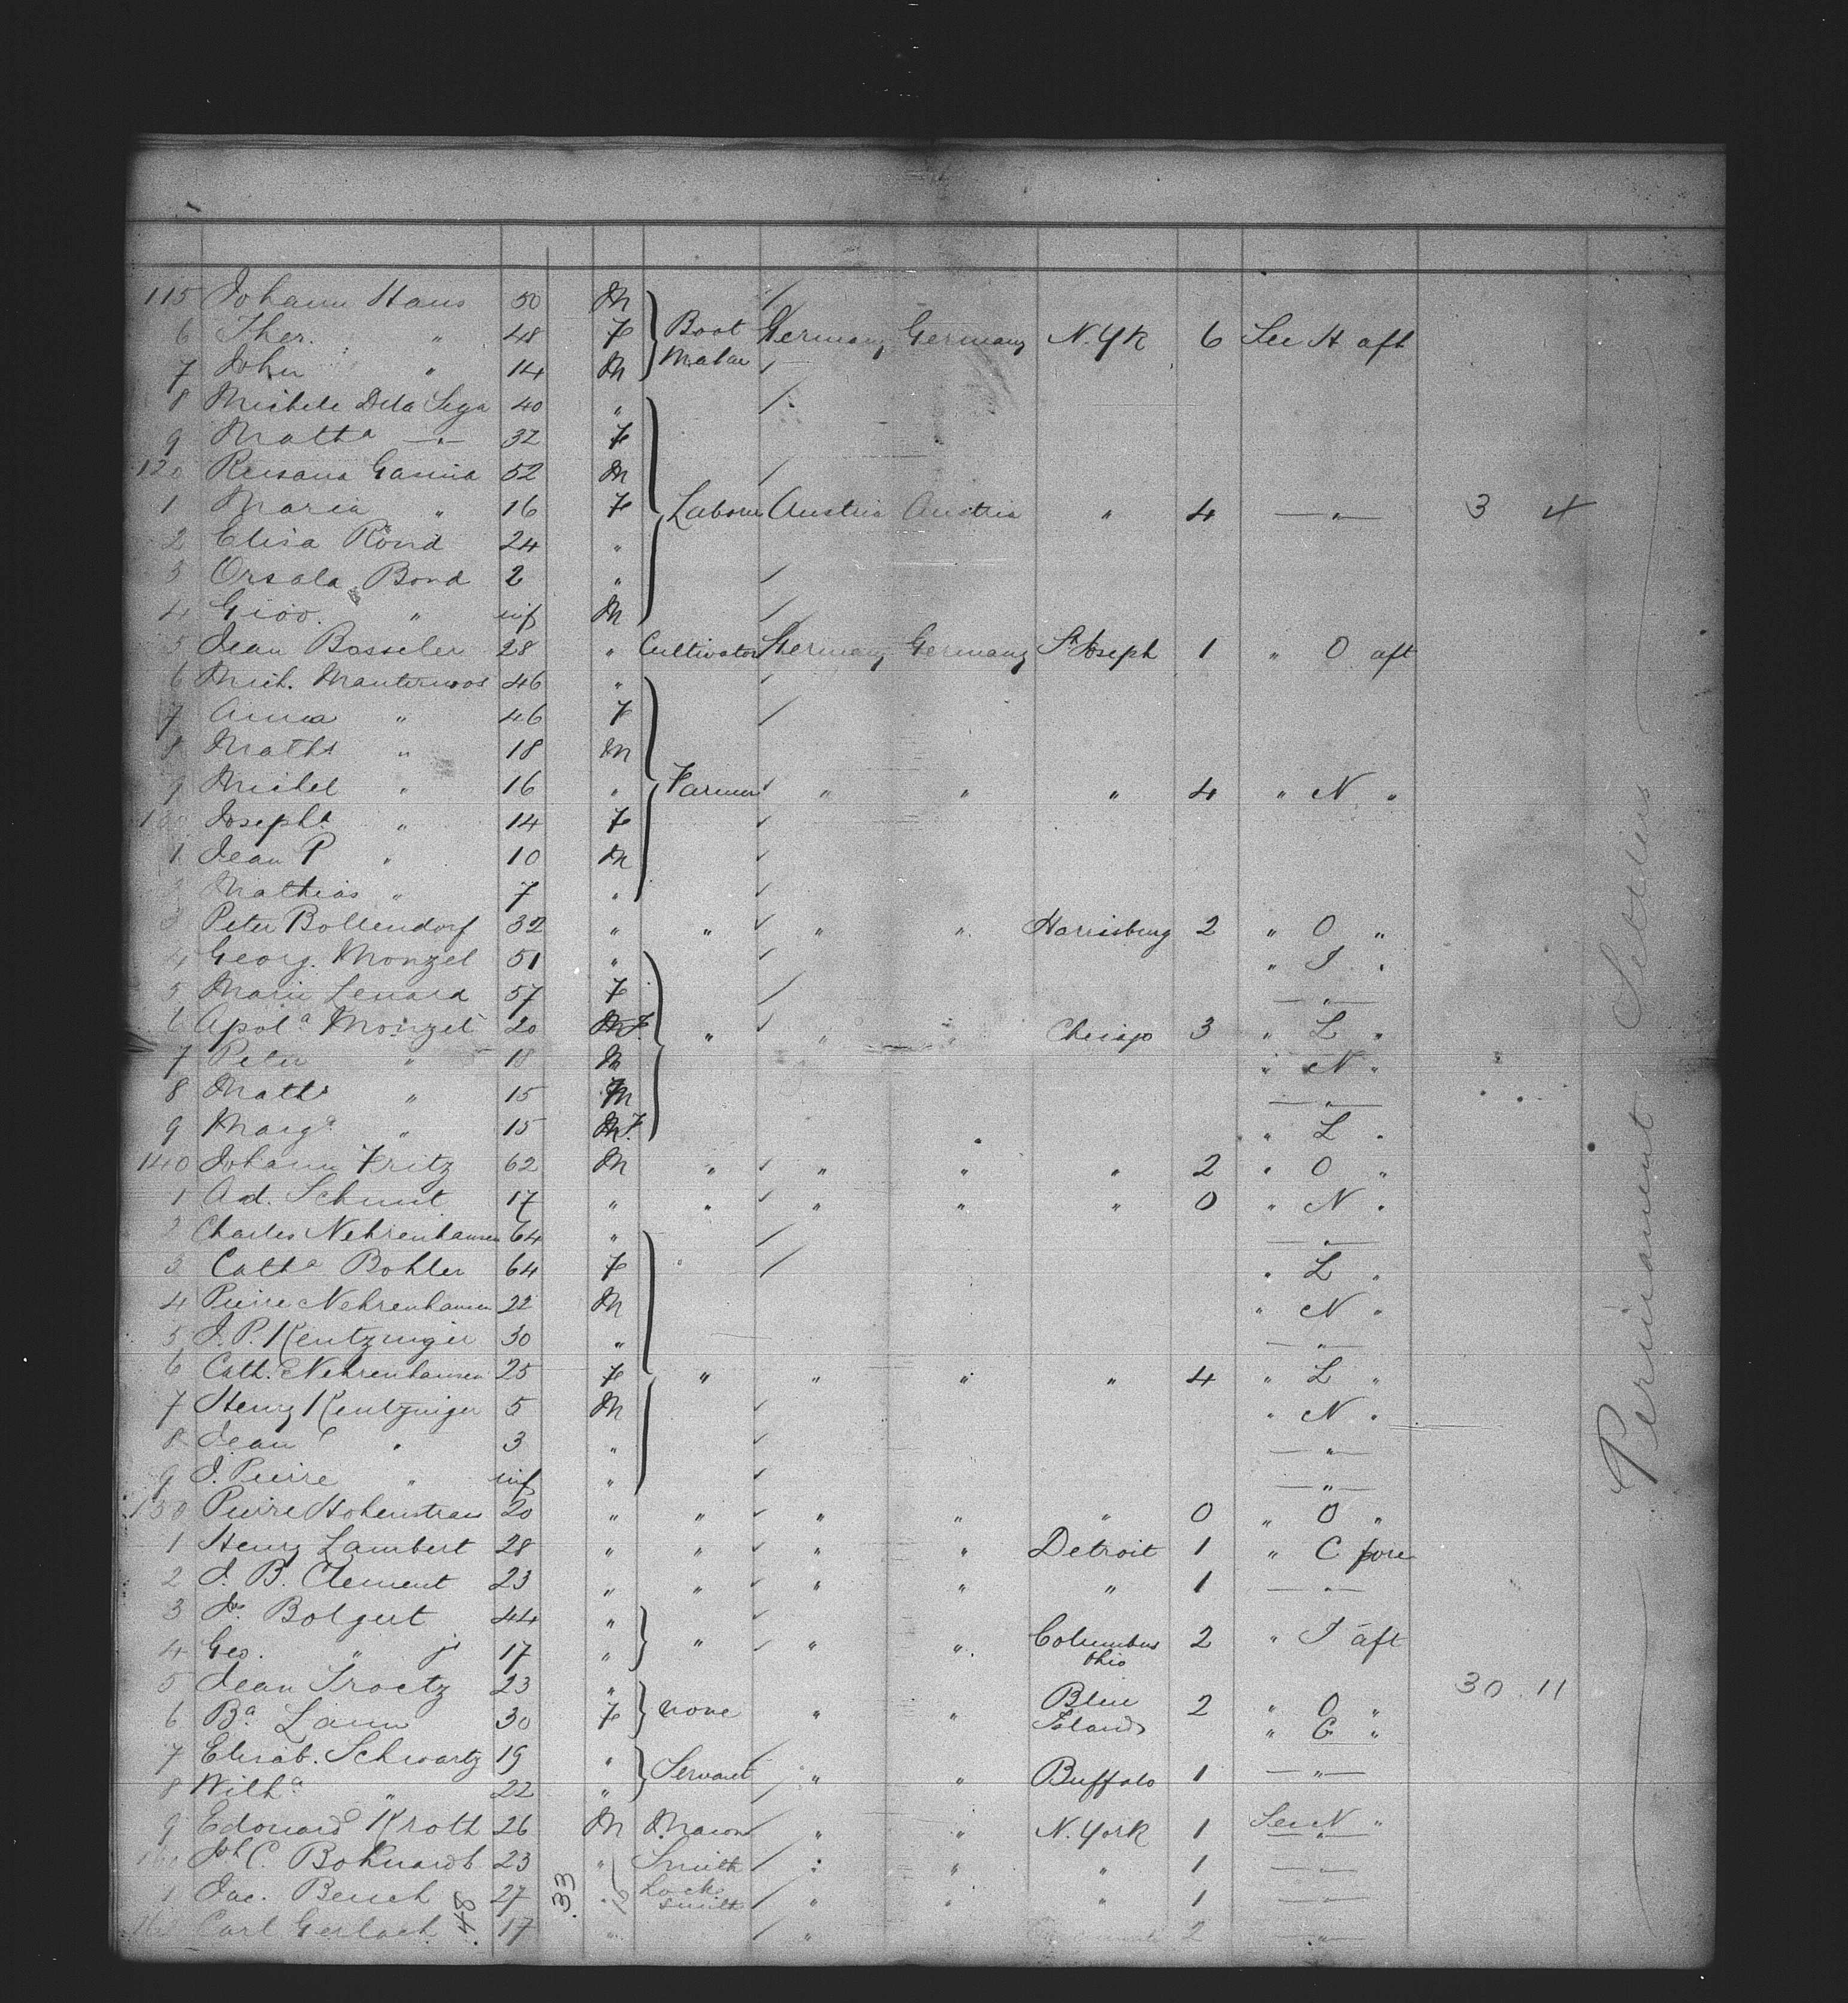 115 Johann Haus 50 M
6 Ther. " 48 F Boot Germany Germany N. Yk 6 See H aft
7 John " 14 M Maker
8 Michele Dela Sega 40 "
9 Matta —"— 32 F
120 Gamia 52 M
1 Maria " 16 F Labour Austria Austria " 4 —"— 3 4
2 Elisa Rond 24 "
3 Orsala Bond 2 "
4 Giov. " inf M
5 Jean Bosseler 28 " Cultivator Germany Germany St Joseph 1 " O aft
6 Mich. Manternoos 46 "
7 Anna " 46 F
8 Maths " 18 M
9 Michel " 16 " Farmer " " " 4 " N "
130 Josepha " 14 F
1 Jean P " 10 M
2 Mathias " 7 "
3 Peter Bollendorf 32 " " " " Harrisburg 2 " O "
4 Georg. Monzel 51 " " I "
5 Marie Lenard 57 F —"—
6 Apola Monzel 20 M F. " " " Chicago 3 " L "
7 Peter " 18 M " N "
8 Maths " 15 M —"—
9 Marga " 15 M F. " L "
140 Johann Fritz 62 M " " " " 2 " O "
1 Ad. Schmit 17 " " " " " 0 " N "
2 Charles Nehrenhausen 64 " —"—
3 Catha Bohler 64 F " " L "
4 Pierre Nehrenhausen 22 M " N "
5 J. P. Kentzinger 30 " —"—
6 Cath. Nehrenhausen 25 F " " " " 4 " L "
7 Henry Kentzinger 5 M " N "
8 Jean " 3 " —"—
9 J. Pierre " inf " —"—
150 Pierre Hohenstrau 20 " " " " " 0 " O "
1 Henry Lambert 28 " " " " Detroit 1 " C fore
2 J. B. Clement 23 " " " " " 1 —"—
3 Bolgert 44 "
4 Geo. " jr 17 " " " " Columbus Ohio 2 " I aft
5 Jean Troetz 23 " 30 11
6 Ba. Lamm 30 F none " " Blue Islands 2 " O "
" G "
7 Elisab. Schwartz 19 " —"—
8 Wilha " 22 " Servant " " Buffalo 1
9 Edouard Kroth 26 M Mason " " N. York 1 See N "
160 Jh C. Bokhardt 23 " Smith " " " 1 —"—
1 Jac. Bench 27 " Lock smith " " " 1 —"—
162 Carl Gerlach 17 " " 2 —"—
48
33
Permanent Settlers